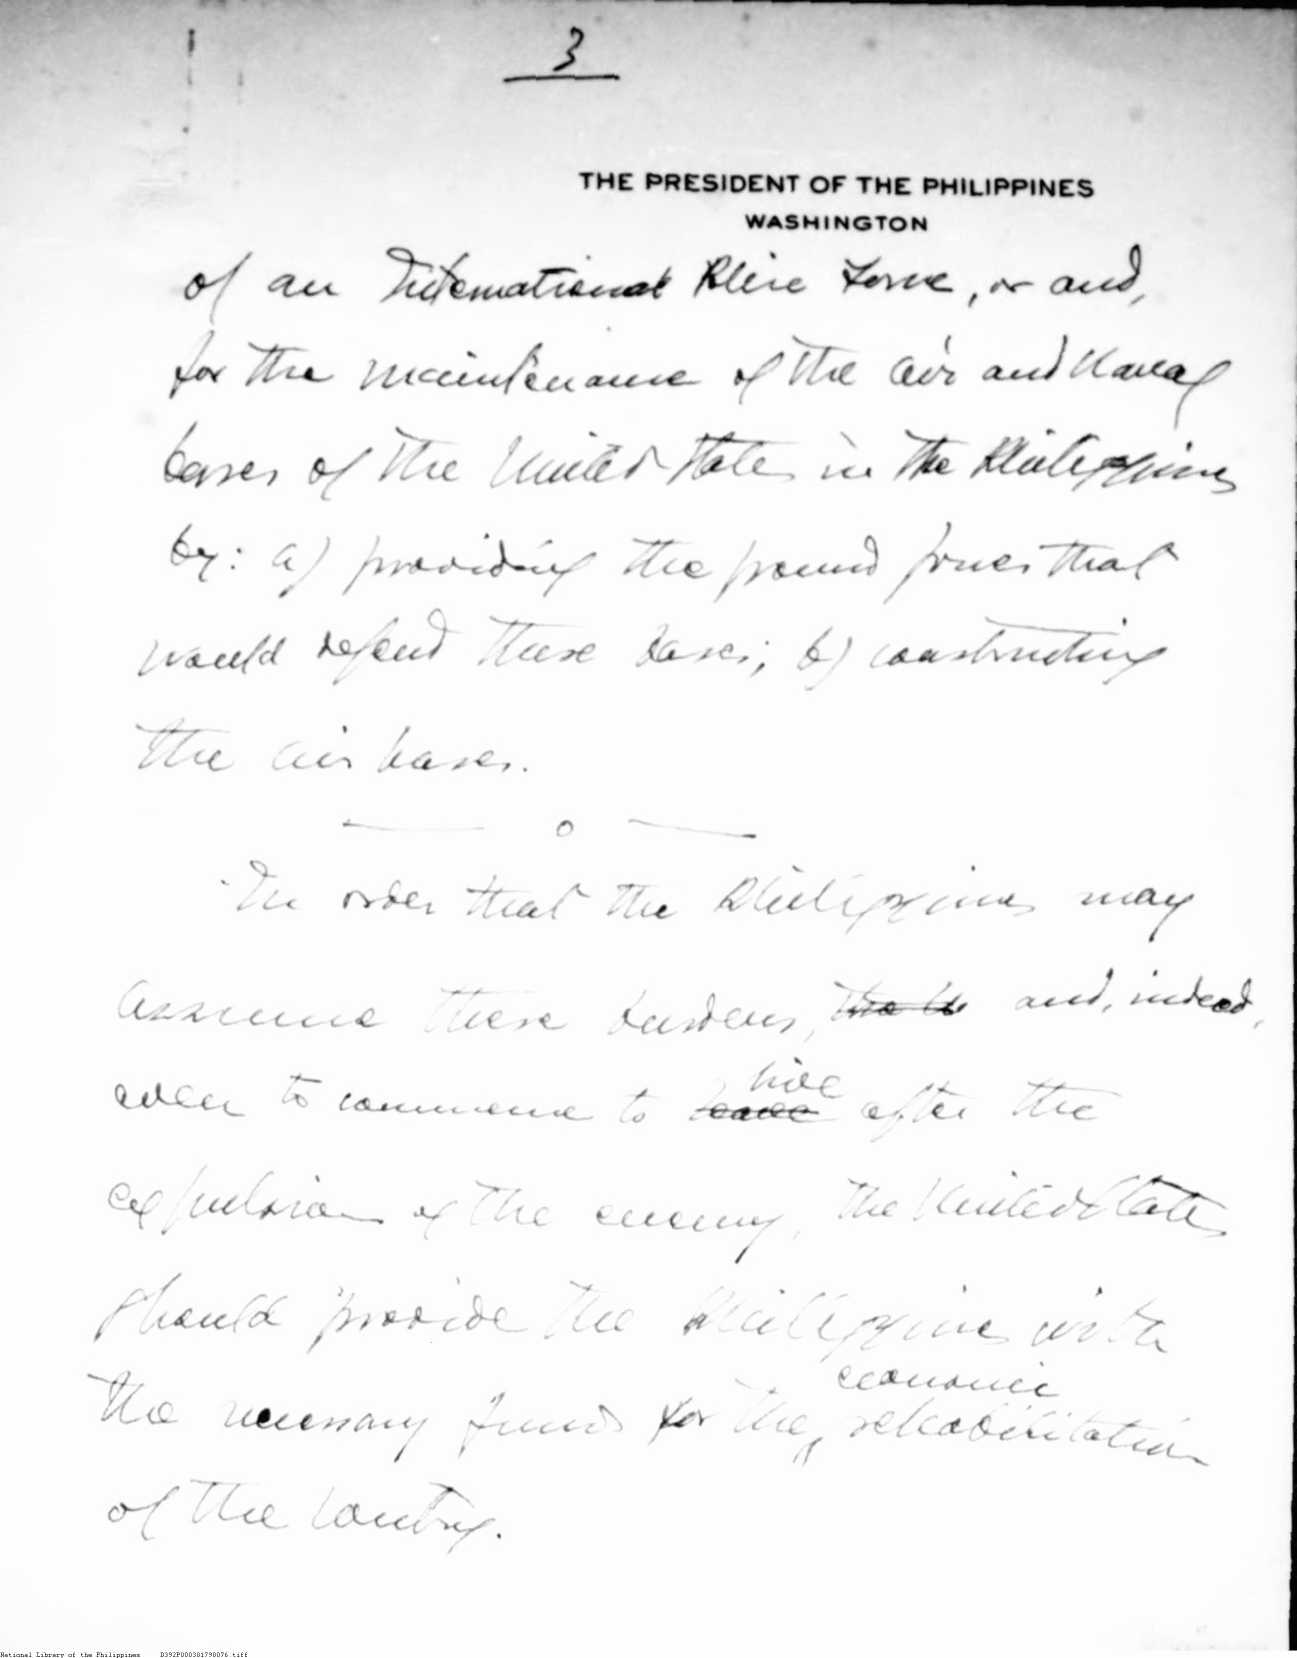 3
THE PRESIDENT OF THE PHILIPPINES
WASHINGTON
of an International Police Force, or and,
for the maintenance of the air and Naval
bases of the United States in the Philippines
by: a) providing the ground forces that
would defend these bases; b) constructing
the air bases.
— o —
In order that the Philippines may
assume these burdens, and, indeed,
live
even to commence to after the
expulsion of the enemy, the United States
should provide the Philippines with
economic
the necessary funds for the rehabilitation
of the country.
National Library of the Philippines D392P000301798076.tiff